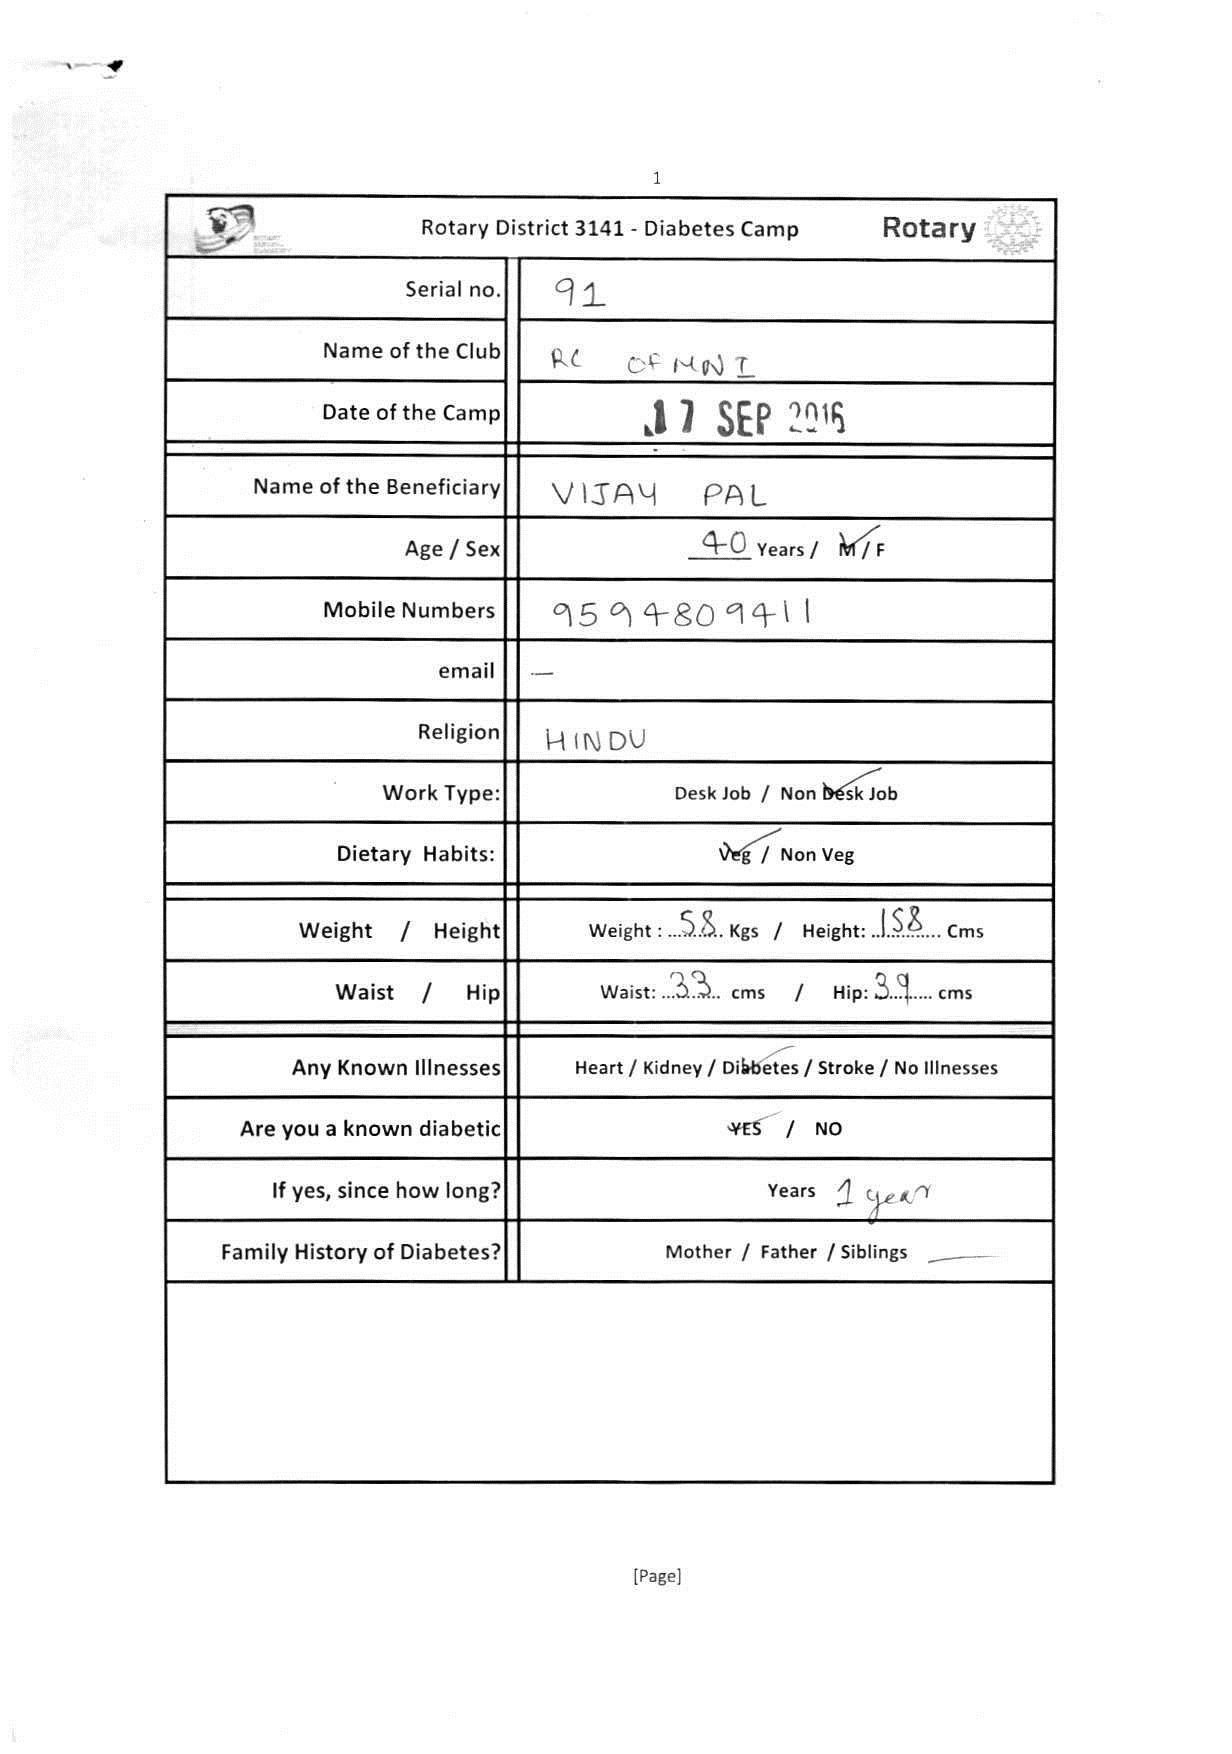 1
Rotary District 3141 - Diabetes Camp Rotary
Serial no. 91
Name of the Club RC OF MNI
Date of the Camp 17 SEP 2016
Name of the Beneficiary VIJAY PAL
Age / Sex 40 Years / M / F
Mobile Numbers 9594809411
email —
Religion HINDU
Work Type: Desk Job / Non Desk Job
Dietary Habits: Veg / Non Veg
Weight / Height Weight : 58 Kgs / Height: 158 Cms
Waist / Hip Waist: 33 cms / Hip: 39 cms
Any Known Illnesses Heart / Kidney / Diabetes / Stroke / No Illnesses
Are you a known diabetic YES / NO
If yes, since how long? Years 1 year
Family History of Diabetes? Mother / Father / Siblings —
[Page]